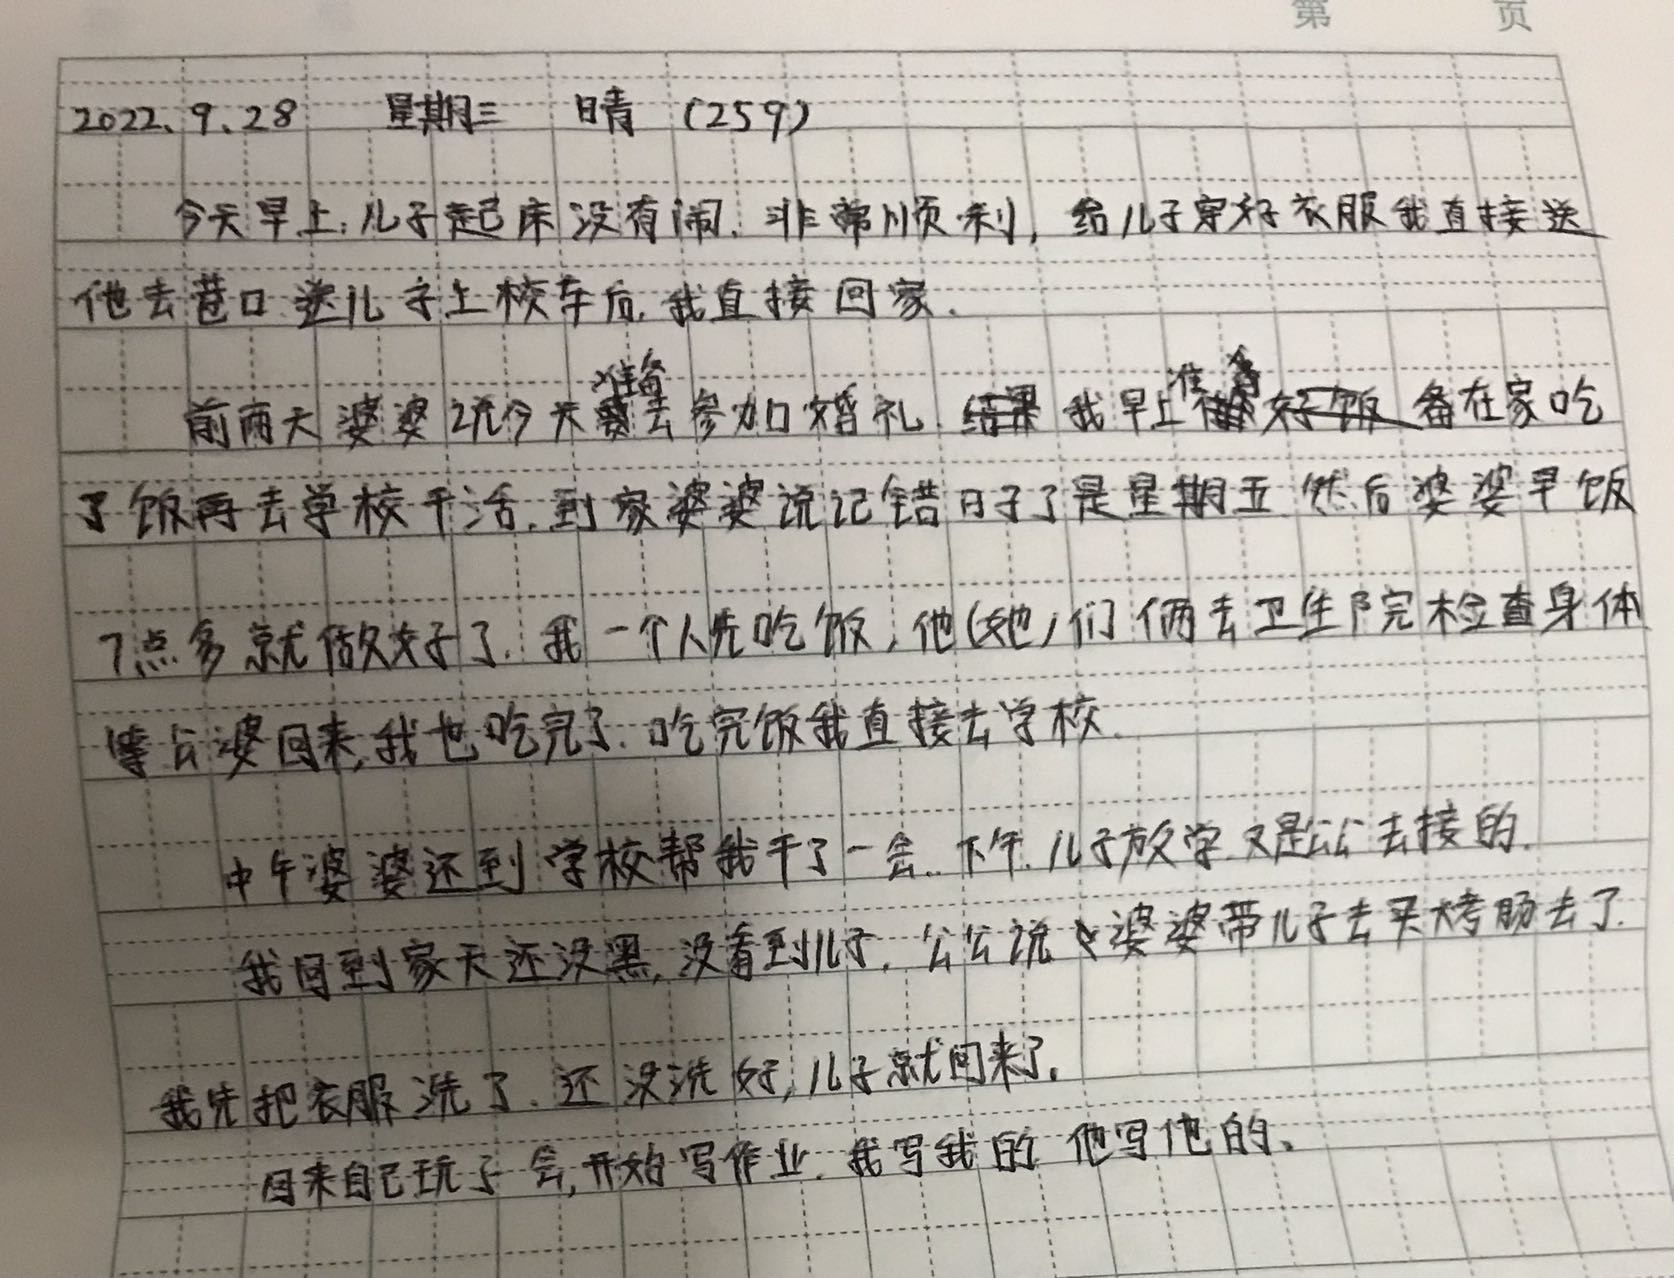 第 页
2022、9、28 星期三 晴 (259)
今天早上,儿子起床没有闹,非常顺利,给儿子穿好衣服我直接送
他去巷口送儿子上校车后,我直接回家.
前两天婆婆说今天准备去参加婚礼.结果我早上准备好饭备在家吃
了饭再去学校干活.到家婆婆说记错日子了是星期五.然后婆婆早饭
7点多就做好了.我一个人先吃饭,他(她)们俩去卫生院检查身体
等公婆回来,我也吃完了.吃完饭我直接去学校.
中午婆婆还到学校帮我干了一会..下午.儿子放学.又是公公去接的.
我回到家天还没黑,没看到儿子,公公说婆婆带儿子去买烤肠去了.
我先把衣服洗了.还没洗好,儿子就回来了.
回来自己玩了会,开始写作业.我写我的 他写他的.